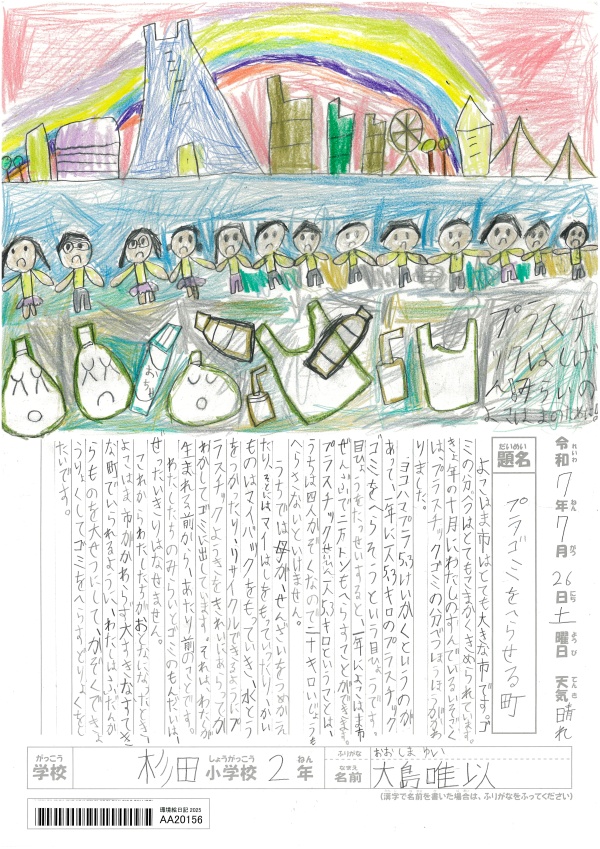 プラスチ
ックはしげ
んみらいの
よこはまのために
おちゃ
令和7年7月26日土曜日 天気 晴れ
れいわ ねん がつ にち ようび てんき
だいめい
題名
プラゴミをへらせる町
よこはま市はとても大きな市です。ゴ
ミの分べつはとてもこまかくきめられています。
きょ年の十月にわたしのすんでいるいそごく
は、プラスチックゴミの分べつほうほうがかわ
りました。
ヨコハマプラ5.3けいかくというのが
あって、一年に一人5.3キロのプラスチック
ゴミをへらそうという目ひょうです。
目ひょうをたっせいすると、一年によこはま市
ぜんぶで二万トンもへらすことができます。
プラスチックせいひん一人5.3キロということは、
うちは四人かぞくなので二十キロいじょうも
へらさないといけません。
うちでは母が、せんざいをつめかえ
たり、そとにはマイはしをもっていったり、かい
ものはマイバックをもっていき、水とう
をつかったり、リサイクルできるようにプ
ラスチックようきをきれいにあらってか
わかしてゴミに出しています。それは、わたしが
生まれる前から、あたり前のことです。
わたしたちのみらいとゴミのもんだいは、
ぜったいきりはなせません。
これからわたしたちがおとなになったとき、
よこはま市がかわらず大すきなすてき
な町でいられるように、わたしはふだんか
らものを大せつにして、かぞくできょ
うりょくしてゴミをへらすどりょくをし
たいです。
がっこう
学校
杉田小学校2年
しょうがっこう ねん
ふりがな おおしまゆい
なまえ
名前 大島唯以
(漢字で名前を書いた場合は、ふりがなをふってください)
環境絵日記 2025
AA20156